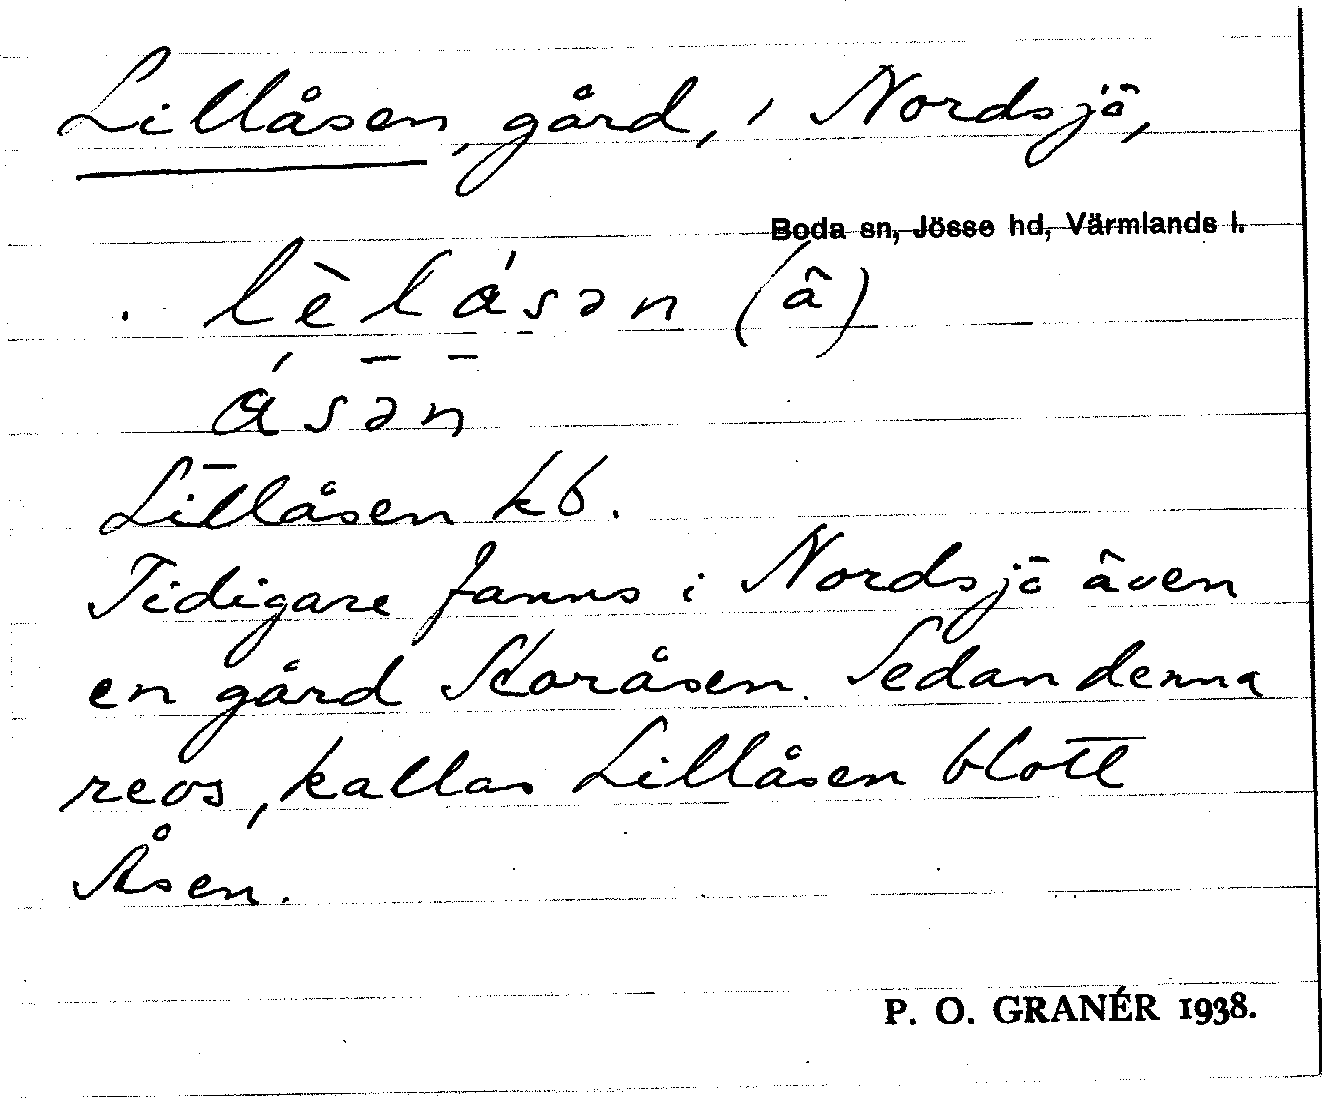 Lillåsen, gård, i Nordsjö,
Boda sn, Jösse hd, Värmlands l.
lèlåsən (â)
åsən
Lillåsen kb.
Tidigare fanns i Nordsjö även
en gård Storåsen. Sedan denna
revs, kallas Lillåsen blott
Åsen.
P. O. GRANÉR 1938.